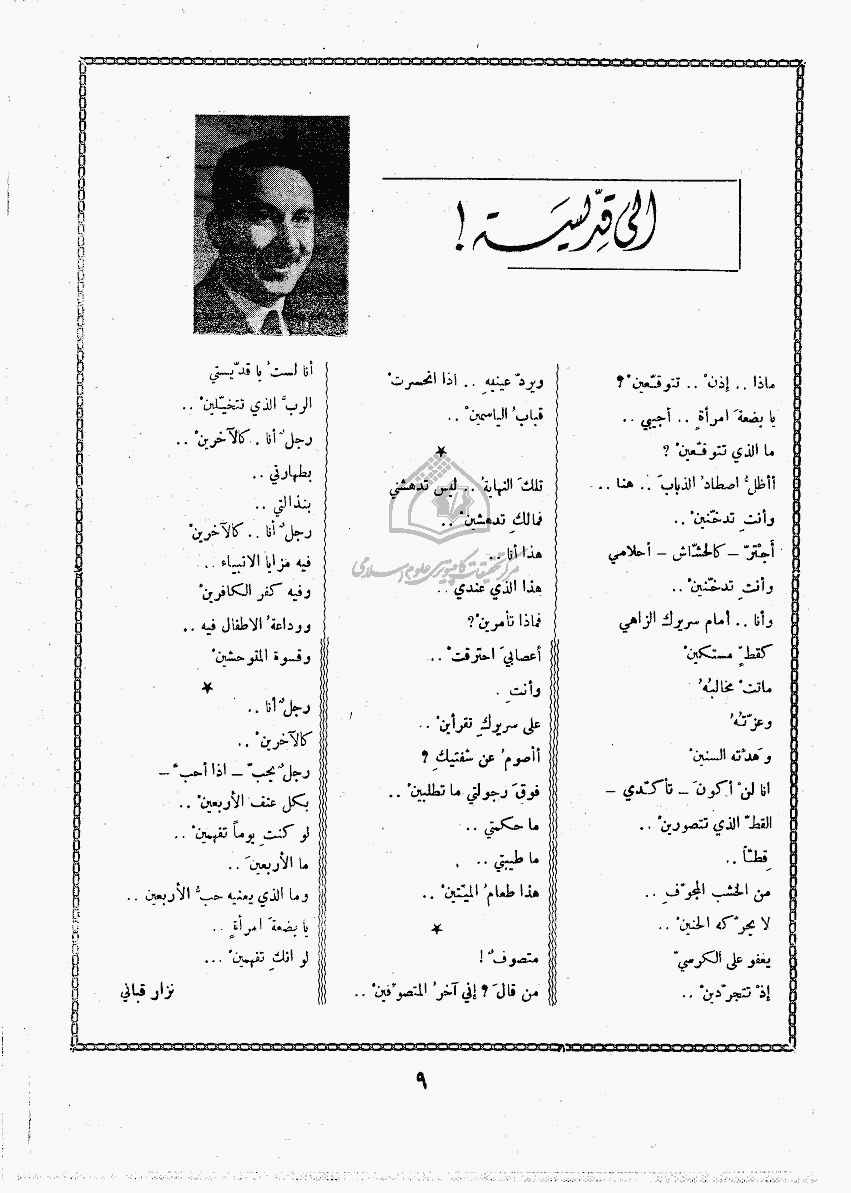 الى قدّيسة !
ماذا .. إذنْ .. تتوقّعينْ ?
يا بضعةَ امرأةٍ .. أجيبي ..
ما الذي تتوقّعينْ ?
أأظلُّ اصطادُ الذبابَ .. هنا ..
وأنتِ تدخّنينْ ..
أجترّ – كالحشّاش – أحلامي
وأنتِ تدخّنينْ ..
وأنا .. أمام سريرك الزاهي
كقطٍّ مستكينْ
ماتتْ مخالبُهُ
وعزّتُهُ
وهدّته السنينْ
انا لنْ أكونَ – تأكّدي –
القطّ الذي تتصورينْ ..
قِطّاً ..
من الخشب المجوّفِ ..
لا يحرّكه الحنينْ ..
يغفو على الكرسيّ
إذْ تتجرّدينْ ..
ويردّ عينيهِ .. اذا انحسرتْ
قبابُ الياسمينْ ..
★
تلكَ النهايةُ .. ليس تدهشني
فمالكِ تدهشينْ ..
هذا أنا ..
هذا الذي عندي ..
فماذا تأمرينْ ?
أعصابيَ احترقتْ ..
وأنتِ .
على سريركِ تقرأينْ ..
أأصومُ عن شفتيكِ ?
فوقَ رجولتي ما تطلبينْ ..
ما حكمتي ..
ما طيبتي ..
هذا طعامُ الميّتينْ ..
★
متصوفٌ !
من قالَ ? إني آخرُ المتصوّفينْ ..
أنا لستُ يا قدّيستي
الربَّ الذي تتخيّلينْ ..
رجلٌ أنا . كالآخرينْ ..
بطهارتي ..
بنذالتي ..
رجلٌ أنا .. كالآخرينْ
فيه مزايا الانبياء ..
وفيه كفر الكافرينْ
ووداعةُ الاطفال فيه ..
وقسوة المتوحشينْ
★
رجلٌ أنا ..
كالآخرينْ ..
رجلٌ يحبّ – اذا أحبّ –
بكل عنف الأربعينْ ..
لو كنتِ يوماً تفهمينْ ..
ما الأربعينَ ..
وما الذي يعنيه حبُّ الأربعين ..
يا بضعةَ امرأةٍ ..
لو انكِ تفهمينْ ...
نزار قباني
مركز تحقيقات كامپيوترى علوم اسلامى
٩